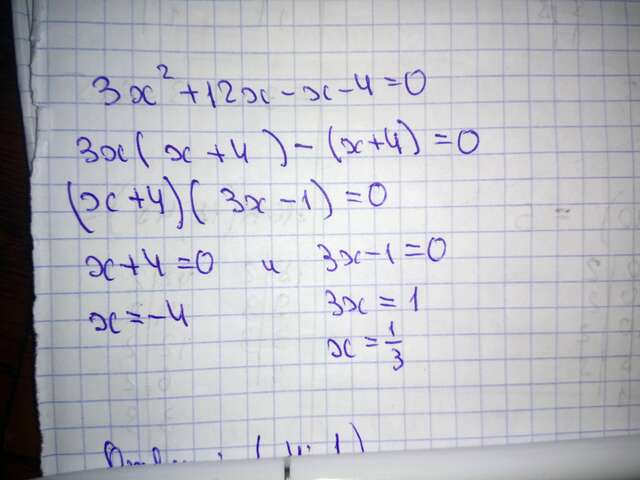 3x² + 12x - x - 4 = 0
3x(x + 4) - (x + 4) = 0
(x + 4)(3x - 1) = 0
x + 4 = 0 и 3x - 1 = 0
x = -4 3x = 1
x = 1/3